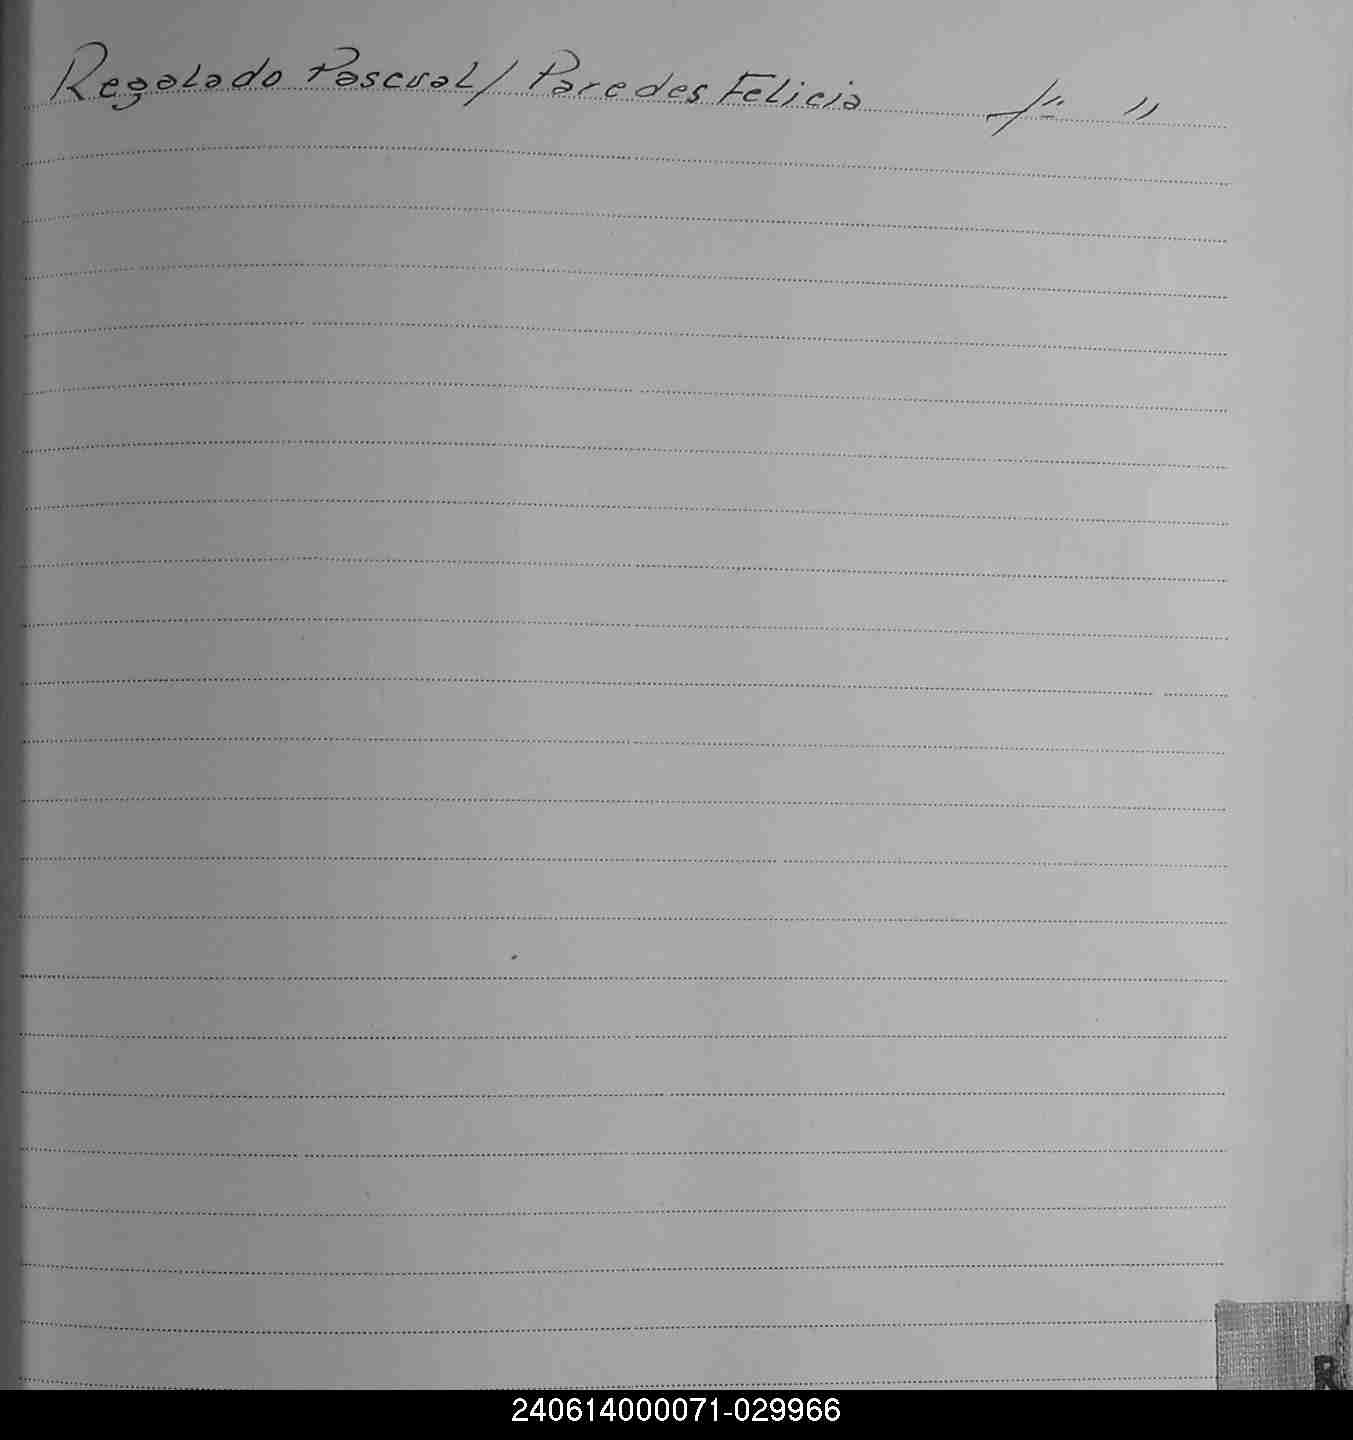 Regalado Pascual / Paredes Felicia " "
R
240614000071-029966